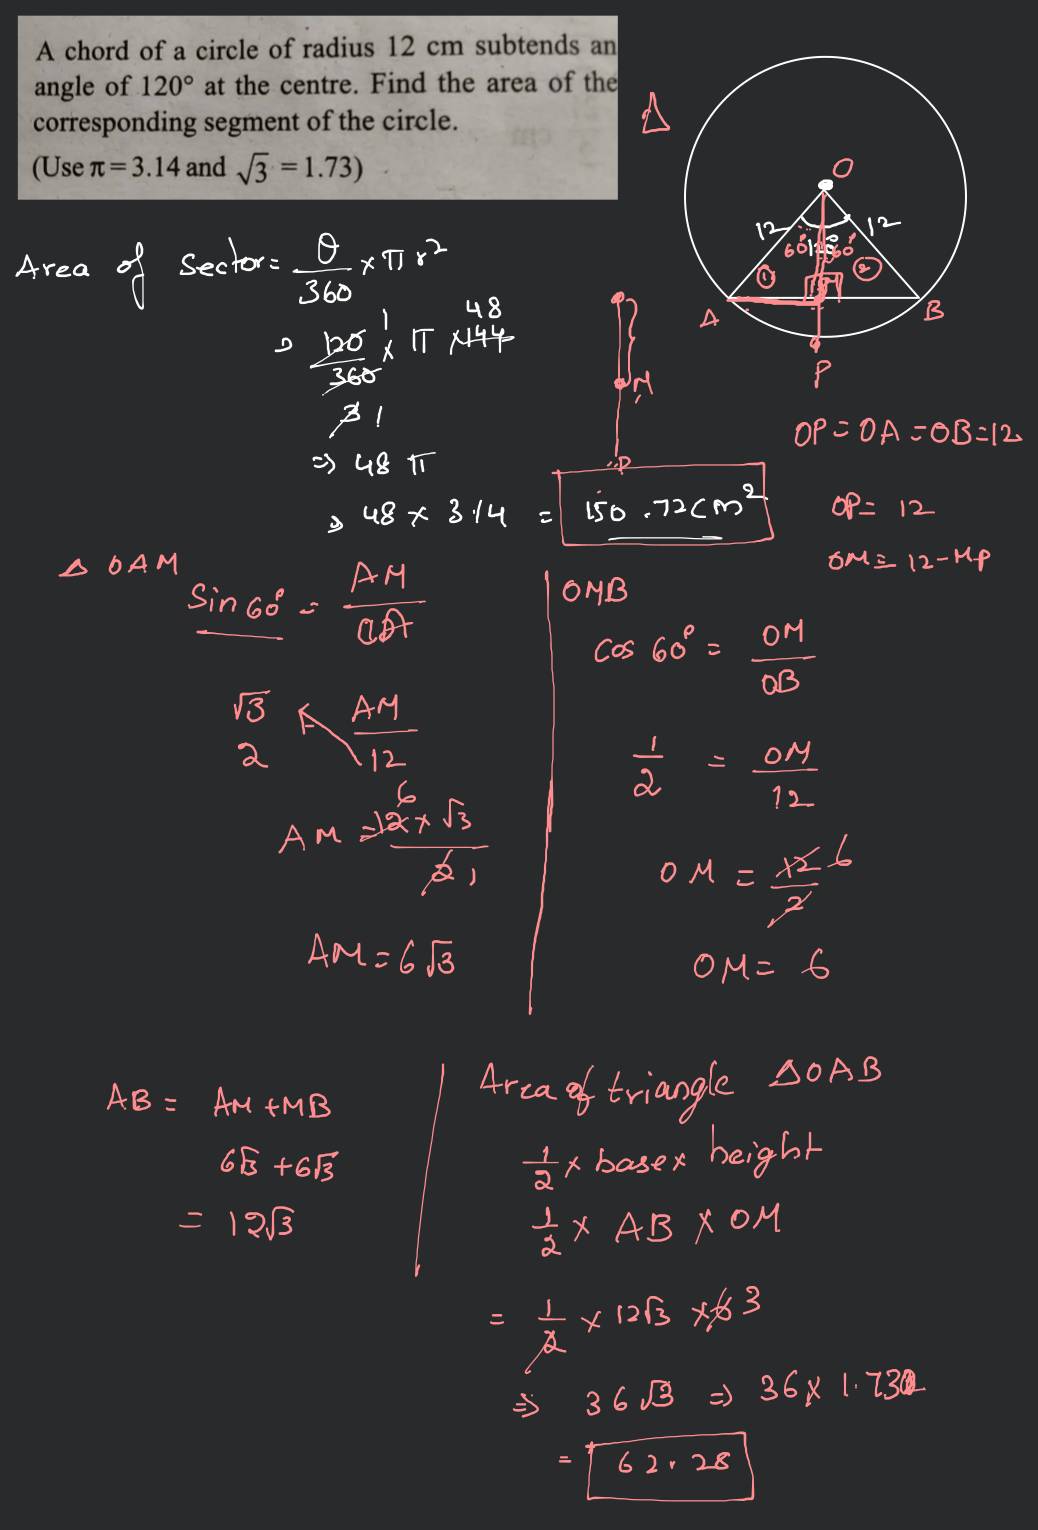 A chord of a circle of radius 12 cm subtends an
angle of 120° at the centre. Find the area of the
corresponding segment of the circle.
(Use π = 3.14 and √3 = 1.73)
Δ
O
12 12
60° 120° 60°
① ②
A B
M
P
Area of Sector = θ/360 × π r²
⇒ 120/360 × π × 144 1 48
3 1
⇒ 48 π
⇒ 48 × 3.14 = 150.72 cm²
M
P
OP = OA = OB = 12
OP = 12
OM = 12 - MP
Δ OAM
Sin 60° = AM/OA
√3/2 AM/12
AM = 12 × √3 / 2 6 1
AM = 6√3
OMB
Cos 60° = OM/OB
1/2 = OM/12
OM = 12/2 6
OM = 6
AB = AM + MB
6√3 + 6√3
= 12√3
Area of triangle ΔOAB
1/2 × base × height
1/2 × AB × OM
= 1/2 × 12√3 × 6 3
⇒ 36√3 ⇒ 36 × 1.73
= 62.28